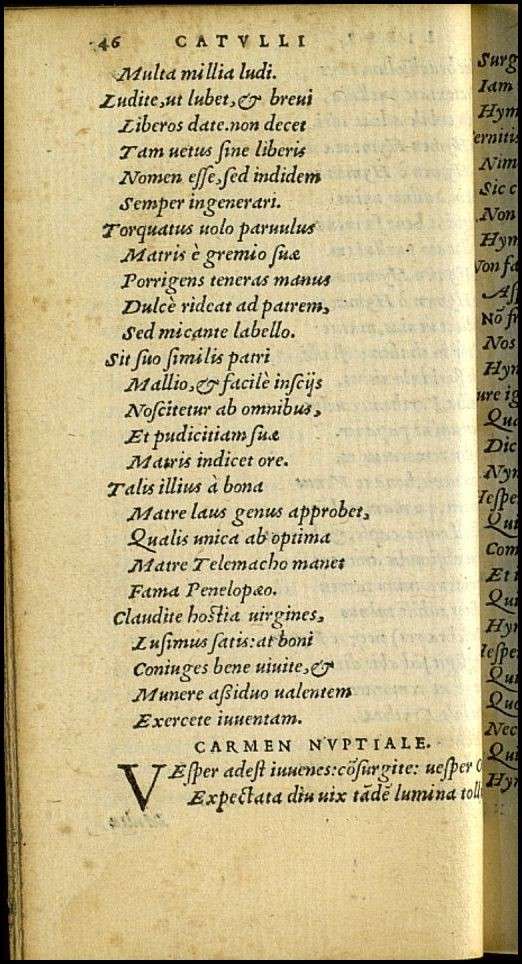 46 CATVLLI
Multa millia ludi.
Ludite, ut lubet, & breui
Liberos date. non decet
Tam uetus sine liberis
Nomen esse, sed indidem
Semper ingenerari.
Torquatus uolo paruulus
Matris è gremio suæ
Porrigens teneras manus
Dulcè rideat ad patrem,
Sed micante labello.
Sit suo similis patri
Mallio, & facilè inscijs
Noscitetur ab omnibus,
Et pudicitiam suæ
Matris indicet ore.
Talis illius à bona
Matre laus genus approbet,
Qualis unica ab optima
Matre Telemacho manet
Fama Penelopæo.
Claudite hostia uirgines,
Lusimus satis: at boni
Coniuges bene uiuite, &
Munere aßiduo ualentem
Exercete iuuentam.
CARMEN NVPTIALE.
VEsper adest iuuenes: cõsurgite: uesper O
Expectata diu uix tãdẽ lumina toll
Surg
Iam
Hym
ernitis
Nim
Sic c
Non
Hym
Non fa
Asp
Nõ fr
Nos
Hym
ure ig
Qua
Dic
Nym
Hespe
Qui
Com
Et i
Qui
Hym
Hespe
Qui
Quo
Nec
Qui
Hym